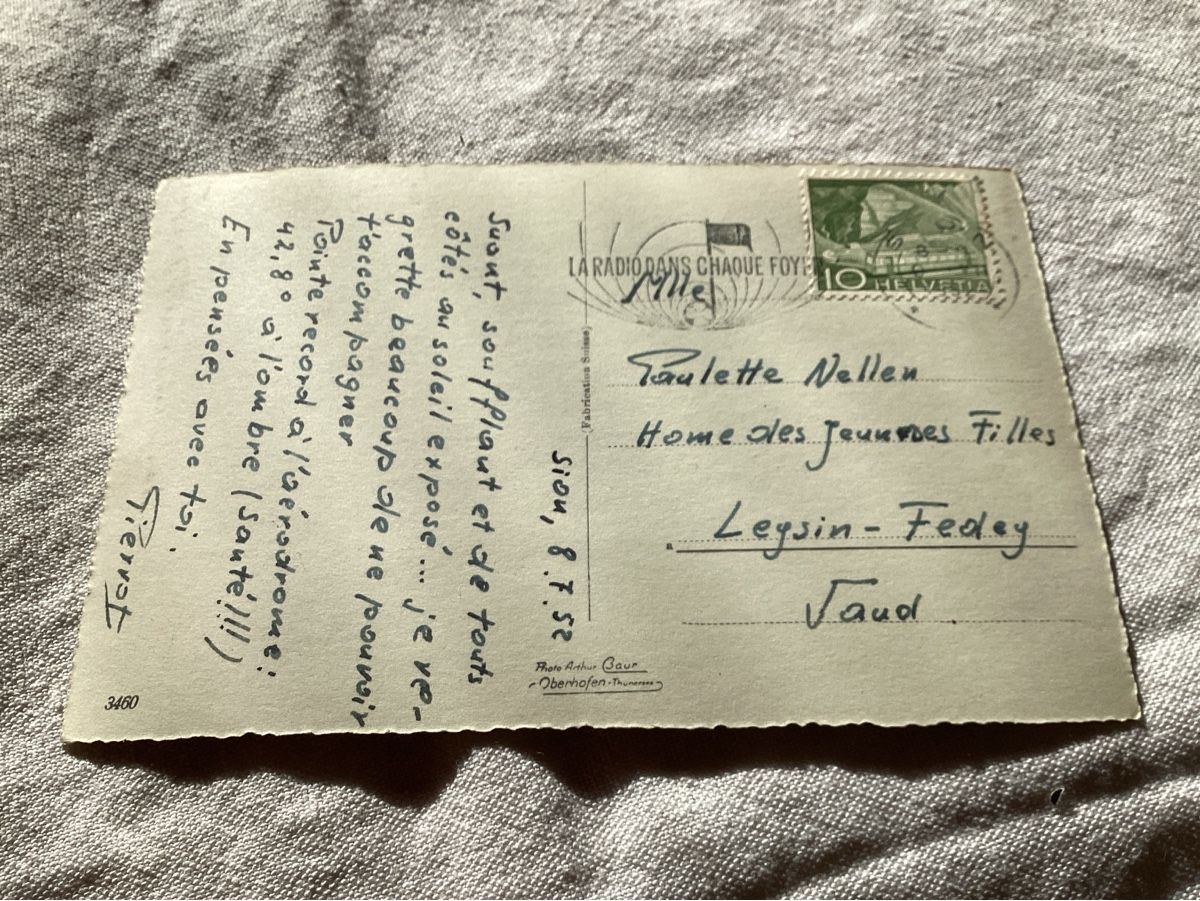 Sion, 8.7.52
Suant, soufflant et de touts
côtés au soleil exposé... je re-
grette beaucoup de ne pouvoir
t'accompagner
Pointe record à l'aérodrome:
42,8° à l'ombre (Santé!!!)
En pensées avec toi.
Pierrot
3460
(Fabrication Suisse)
Photo Arthur Baur
Oberhofen-Thunersee
LA RADIO DANS CHAQUE FOYE
10 HELVETIA
Mlle
Paulette Nellen
Home des Jeunes Filles
Leysin - Fedey
Vaud